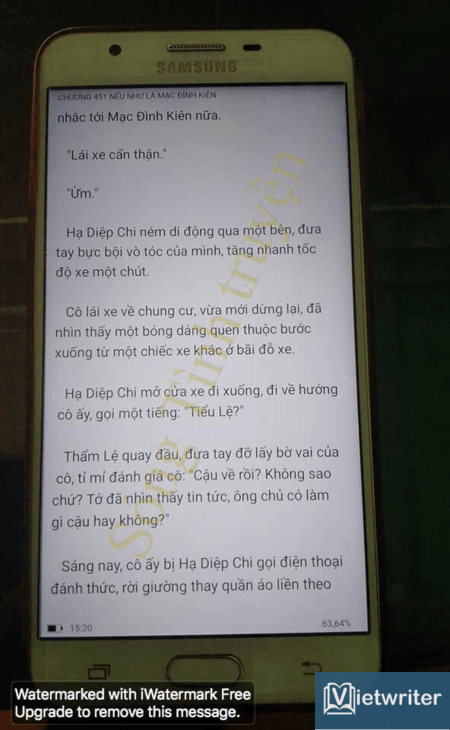 SAMSUNG
CHƯƠNG 451 NẾU NHƯ LÀ MẠC ĐÌNH KIÊN
nhắc tới Mạc Đình Kiên nữa.
"Lái xe cẩn thận."
"Ừm."
Hạ Diệp Chi ném di động qua một bên, đưa
tay bực bội vò tóc của mình, tăng nhanh tốc
độ xe một chút.
Cô lái xe về chung cư, vừa mới dừng lại, đã
nhìn thấy một bóng dáng quen thuộc bước
xuống từ một chiếc xe khác ở bãi đỗ xe.
Hạ Diệp Chi mở cửa xe đi xuống, đi về hướng
cô ấy, gọi một tiếng: "Tiểu Lệ?"
Thẩm Lệ quay đầu, đưa tay đỡ lấy bờ vai của
cô, tỉ mỉ đánh giá cô: "Cậu về rồi? Không sao
chứ? Tớ đã nhìn thấy tin tức, ông chủ có làm
gì cậu hay không?"
Sáng nay, cô ấy bị Hạ Diệp Chi gọi điện thoại
đánh thức, rời giường thay quần áo liền theo
15:20
63,64%
Song Tình truyện
Watermarked with iWatermark Free
Upgrade to remove this message.
Vietwriter